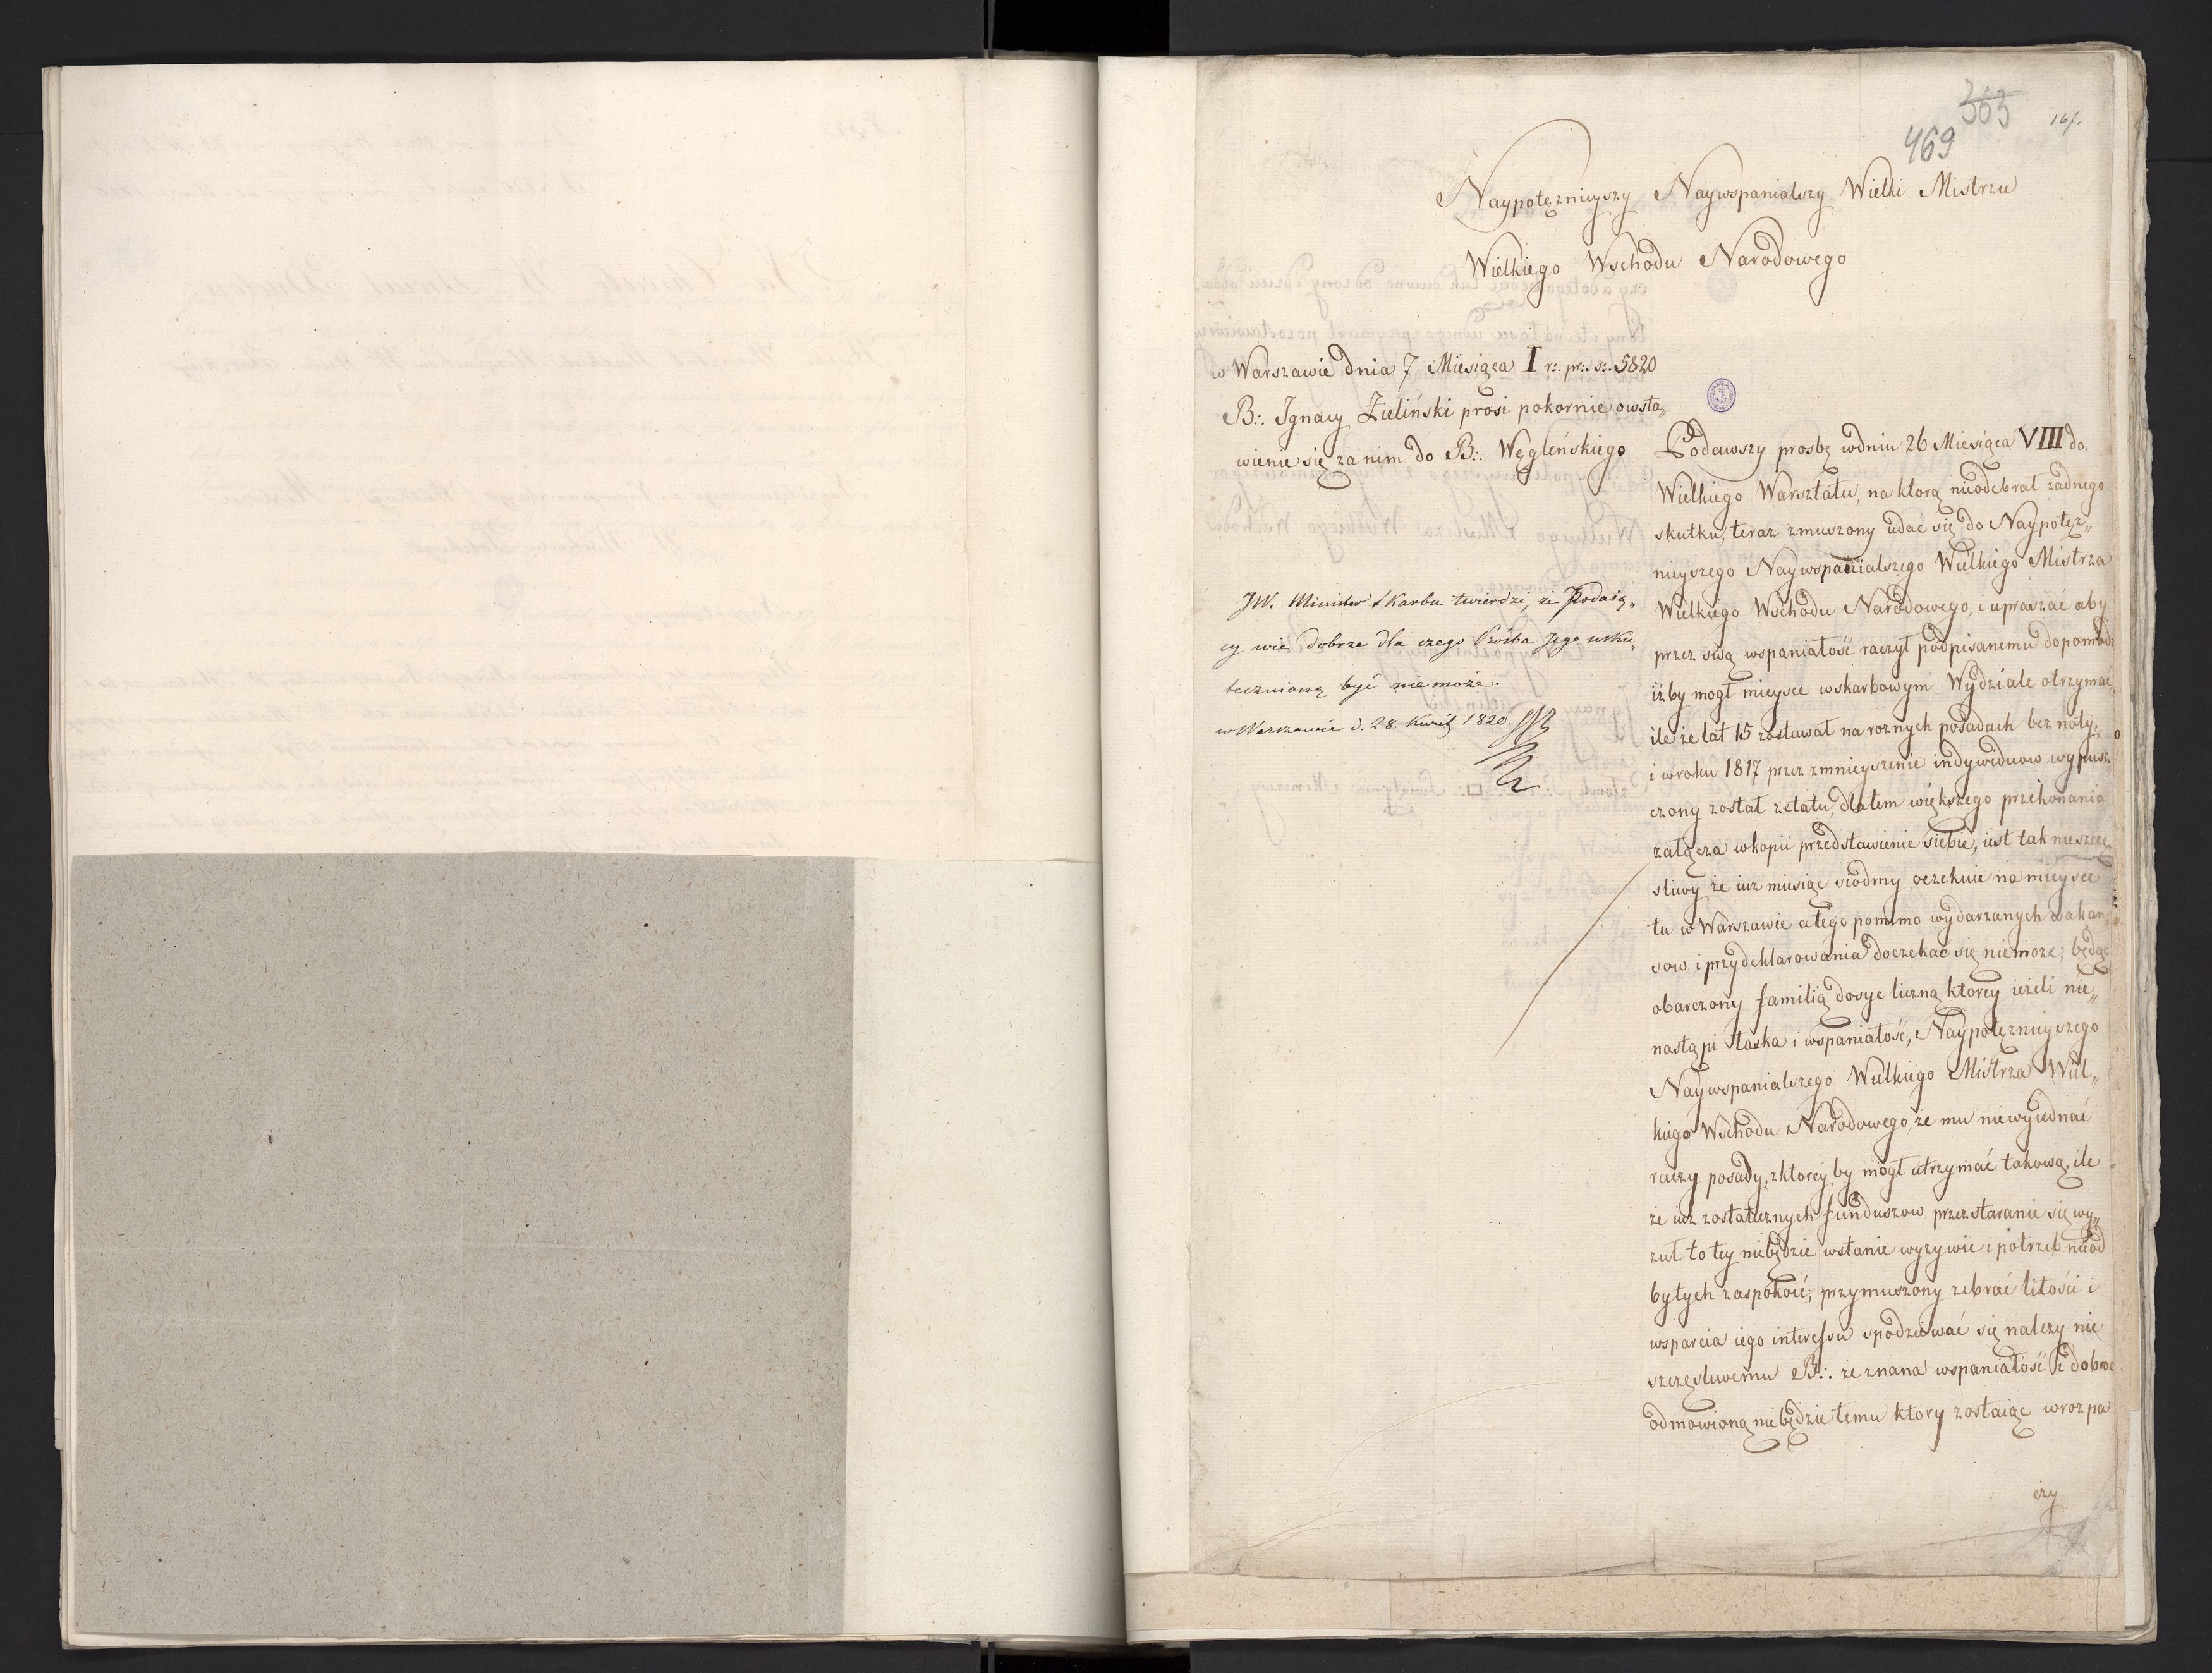 365
167.
469
Naypotęznieyszy Naywspanialszy Wielki Mistrzu
Wielkiego Wschodu Narodowego
w Warszawie dnia 7 Miesiąca I r:. pr:. s:. 5820
B:. Ignacy Zieliński prosi pokornie owsta„
wienie się za nim do B:. Węgleńskiego
JW. Minister Skarbu twierdzi, że Podaią„
cy wie dobrze dla czego Prośba Jego usku„
tecznioną być nie może.
w Warszawie d. 28. Kwiet 1820.
Podawszy prosbę wdniu 26 Miesiąca VIII do.
Wielkiego Warsztatu, na ktorą nieodebrał zadnego
skutku, teraz zmuszony udać się do Naypotęz„
nieyszego Naywspanialszego Wielkiego Mistrza
Wielkiego Wschodu Narodowego, i upraszać aby
przez swą wspaniałość raczył podpisanemu dopomodz
iżby mogł mieysce wskarbowym Wydziale otrzymać,
ile że lat 15 zostawał na roznych posadach bez noty,
i wroku 1817 przez zmnieyszenie indywiduow wypusz
czony został zetatu, dlatem większego przekonania
załącza wkopii przedstawienie siebie, iest tak nieszczę„
sliwy że iuz miesiąc siodmy oczekuie na mieysce
tu w Warszawie a tego pomimo wydarzanych wakan„
sow i przydeklarowania doczekać się niemoze, będąc
obarczony familią dosyc liczną ktorey ieżeli nie„
nastąpi łaska i wspaniałość, Naypotęznieyszego
Naywspanialszego Wielkiego Mistrza Wiel„
kiego Wschodu Narodowego, że mu niewyiednać
raczy posady, zktorey by mogł utrzymać takową, ile
że iuz zostatecznych funduszow przez staranie się wy„
zuł to tey niebędzie wstanie wyzywic i potrzeb nieod
bytych zaspokoić, przymuszony zebrać litości i
wsparcia iego interessu spodziewać się nalezy nie
szczęsliwemu B:. że znana wspaniałość i dobroc
odmowioną niebędzie temu ktory zostaiąc wrozpa
czy